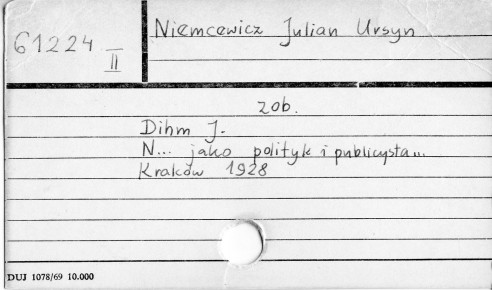 61224 II
Niemcewicz Julian Ursyn
zob.
Dihm J.
N... jako polityk i publicysta...
Kraków 1928
DUJ 1078/69 10.000